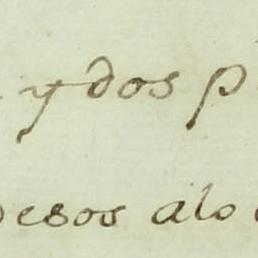 y dos p
pesos alo